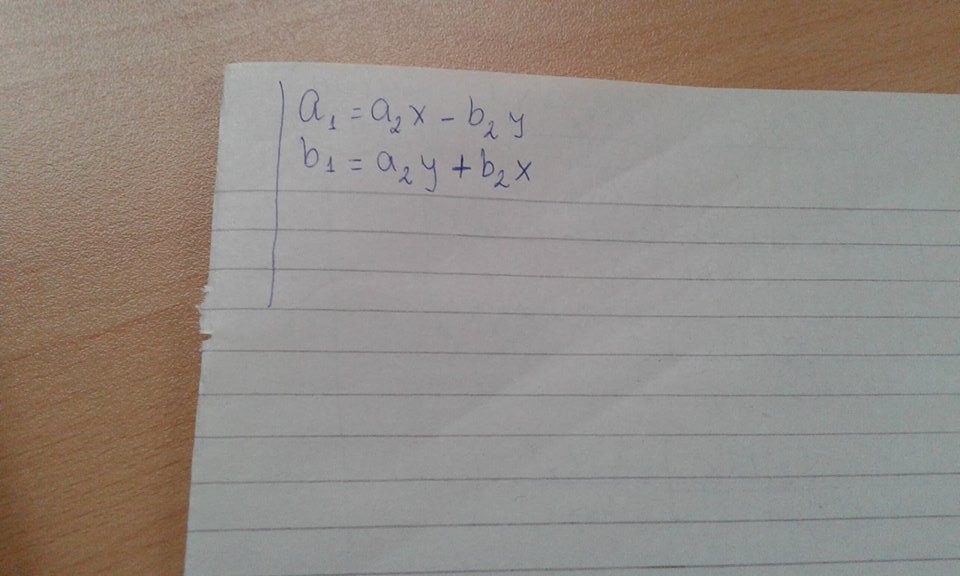 a₁ = a₂x - b₂y
b₁ = a₂y + b₂x